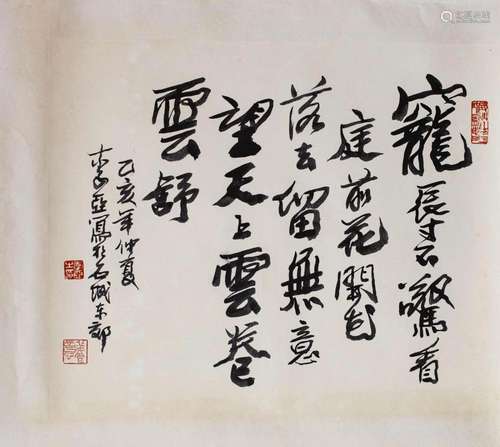 寵辱不驚看
庭前花開花
落去留無意
望天上雲卷
雲舒
乙亥年仲夏
李亞寫於石城东